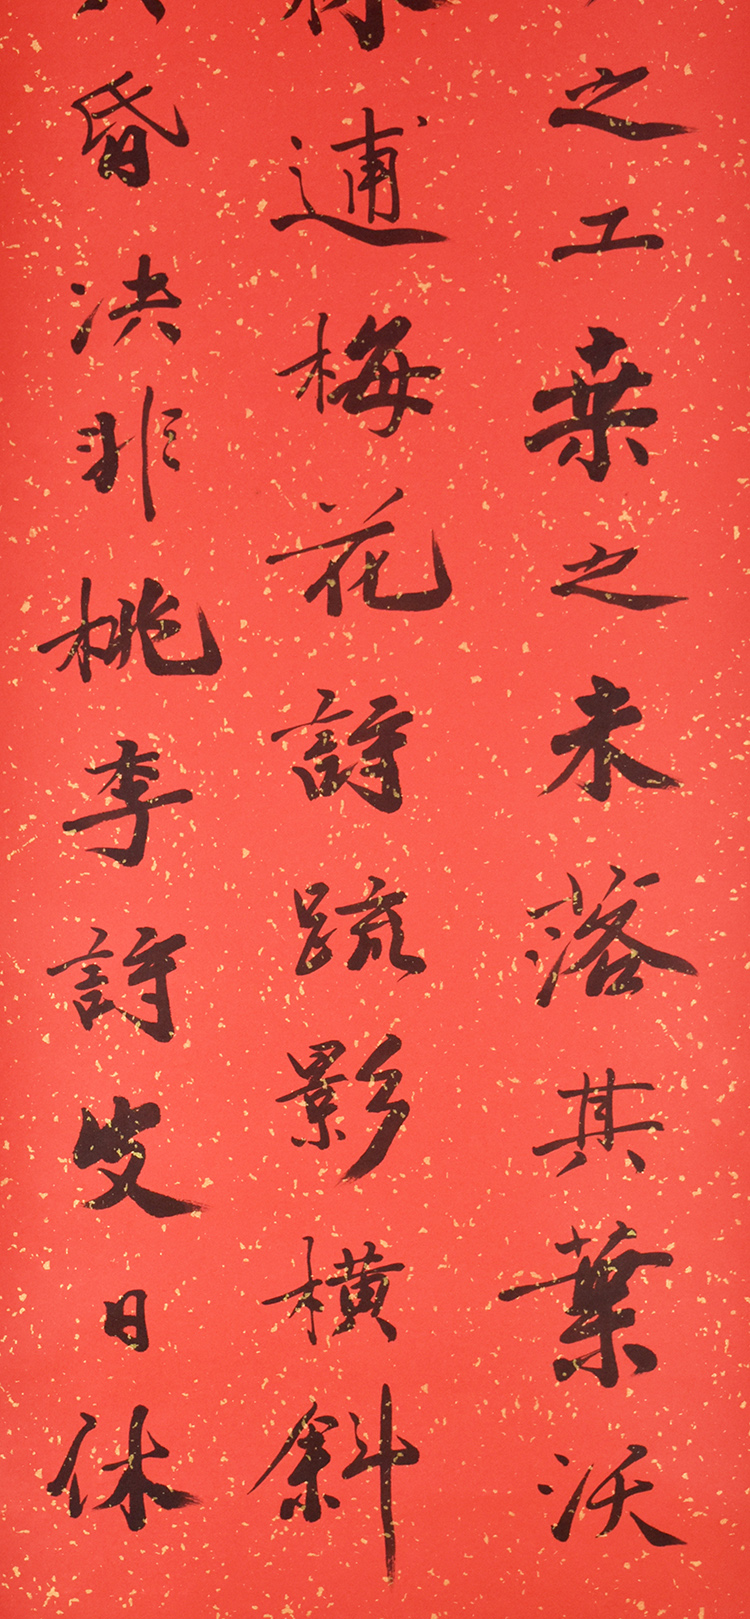 之工桑之未落其葉沃
林逋梅花詩疏影橫斜
昏決非桃李詩皮日休